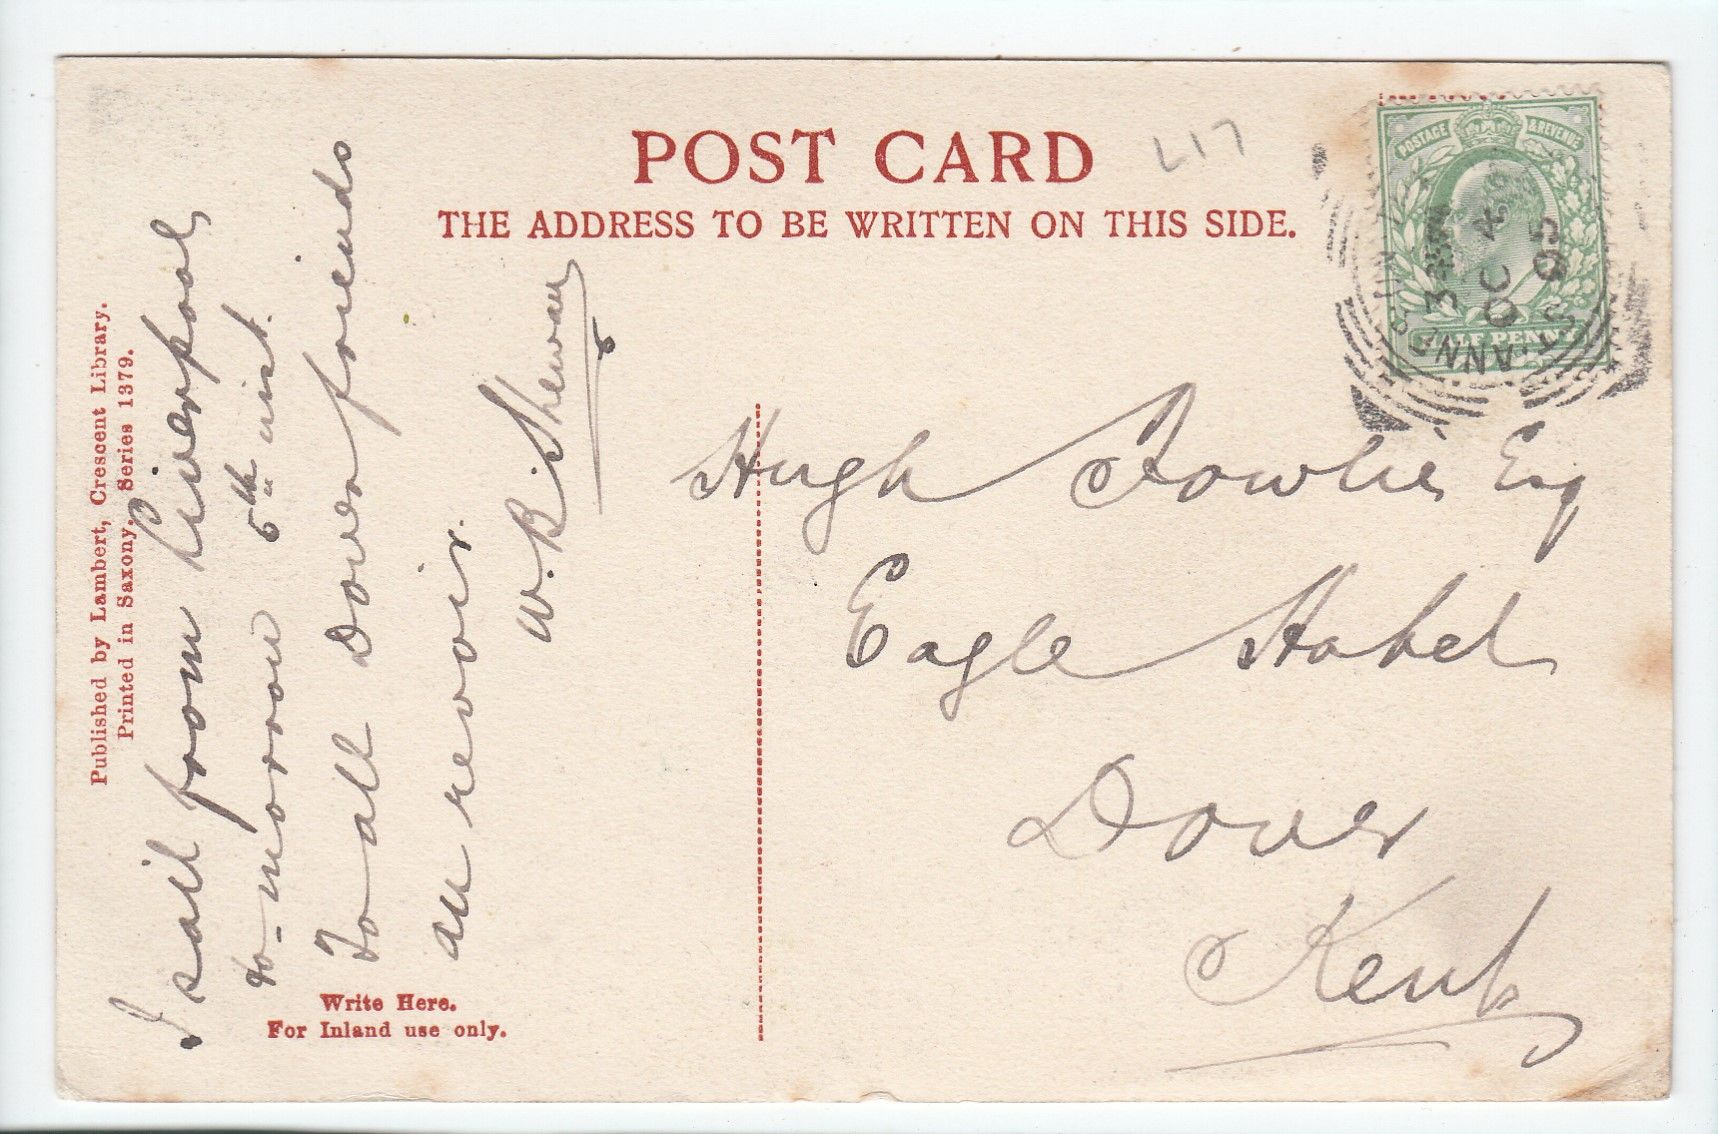 POST CARD
THE ADDRESS TO BE WRITTEN ON THIS SIDE.
L17
POSTAGE & REVENUE
HALF PENNY
ST ANNE'S
3
OC 4
05
Published by Lambert, Crescent Library.
Printed in Saxony. Series 1379.
I sail from Liverpool,
to-morrow 5th inst.
To all Dover friends
au revoir.
W. B. Shewan
Write Here.
For Inland use only.
Hugh Fowlie, Esq
Eagle Hotel
Dover
Kent